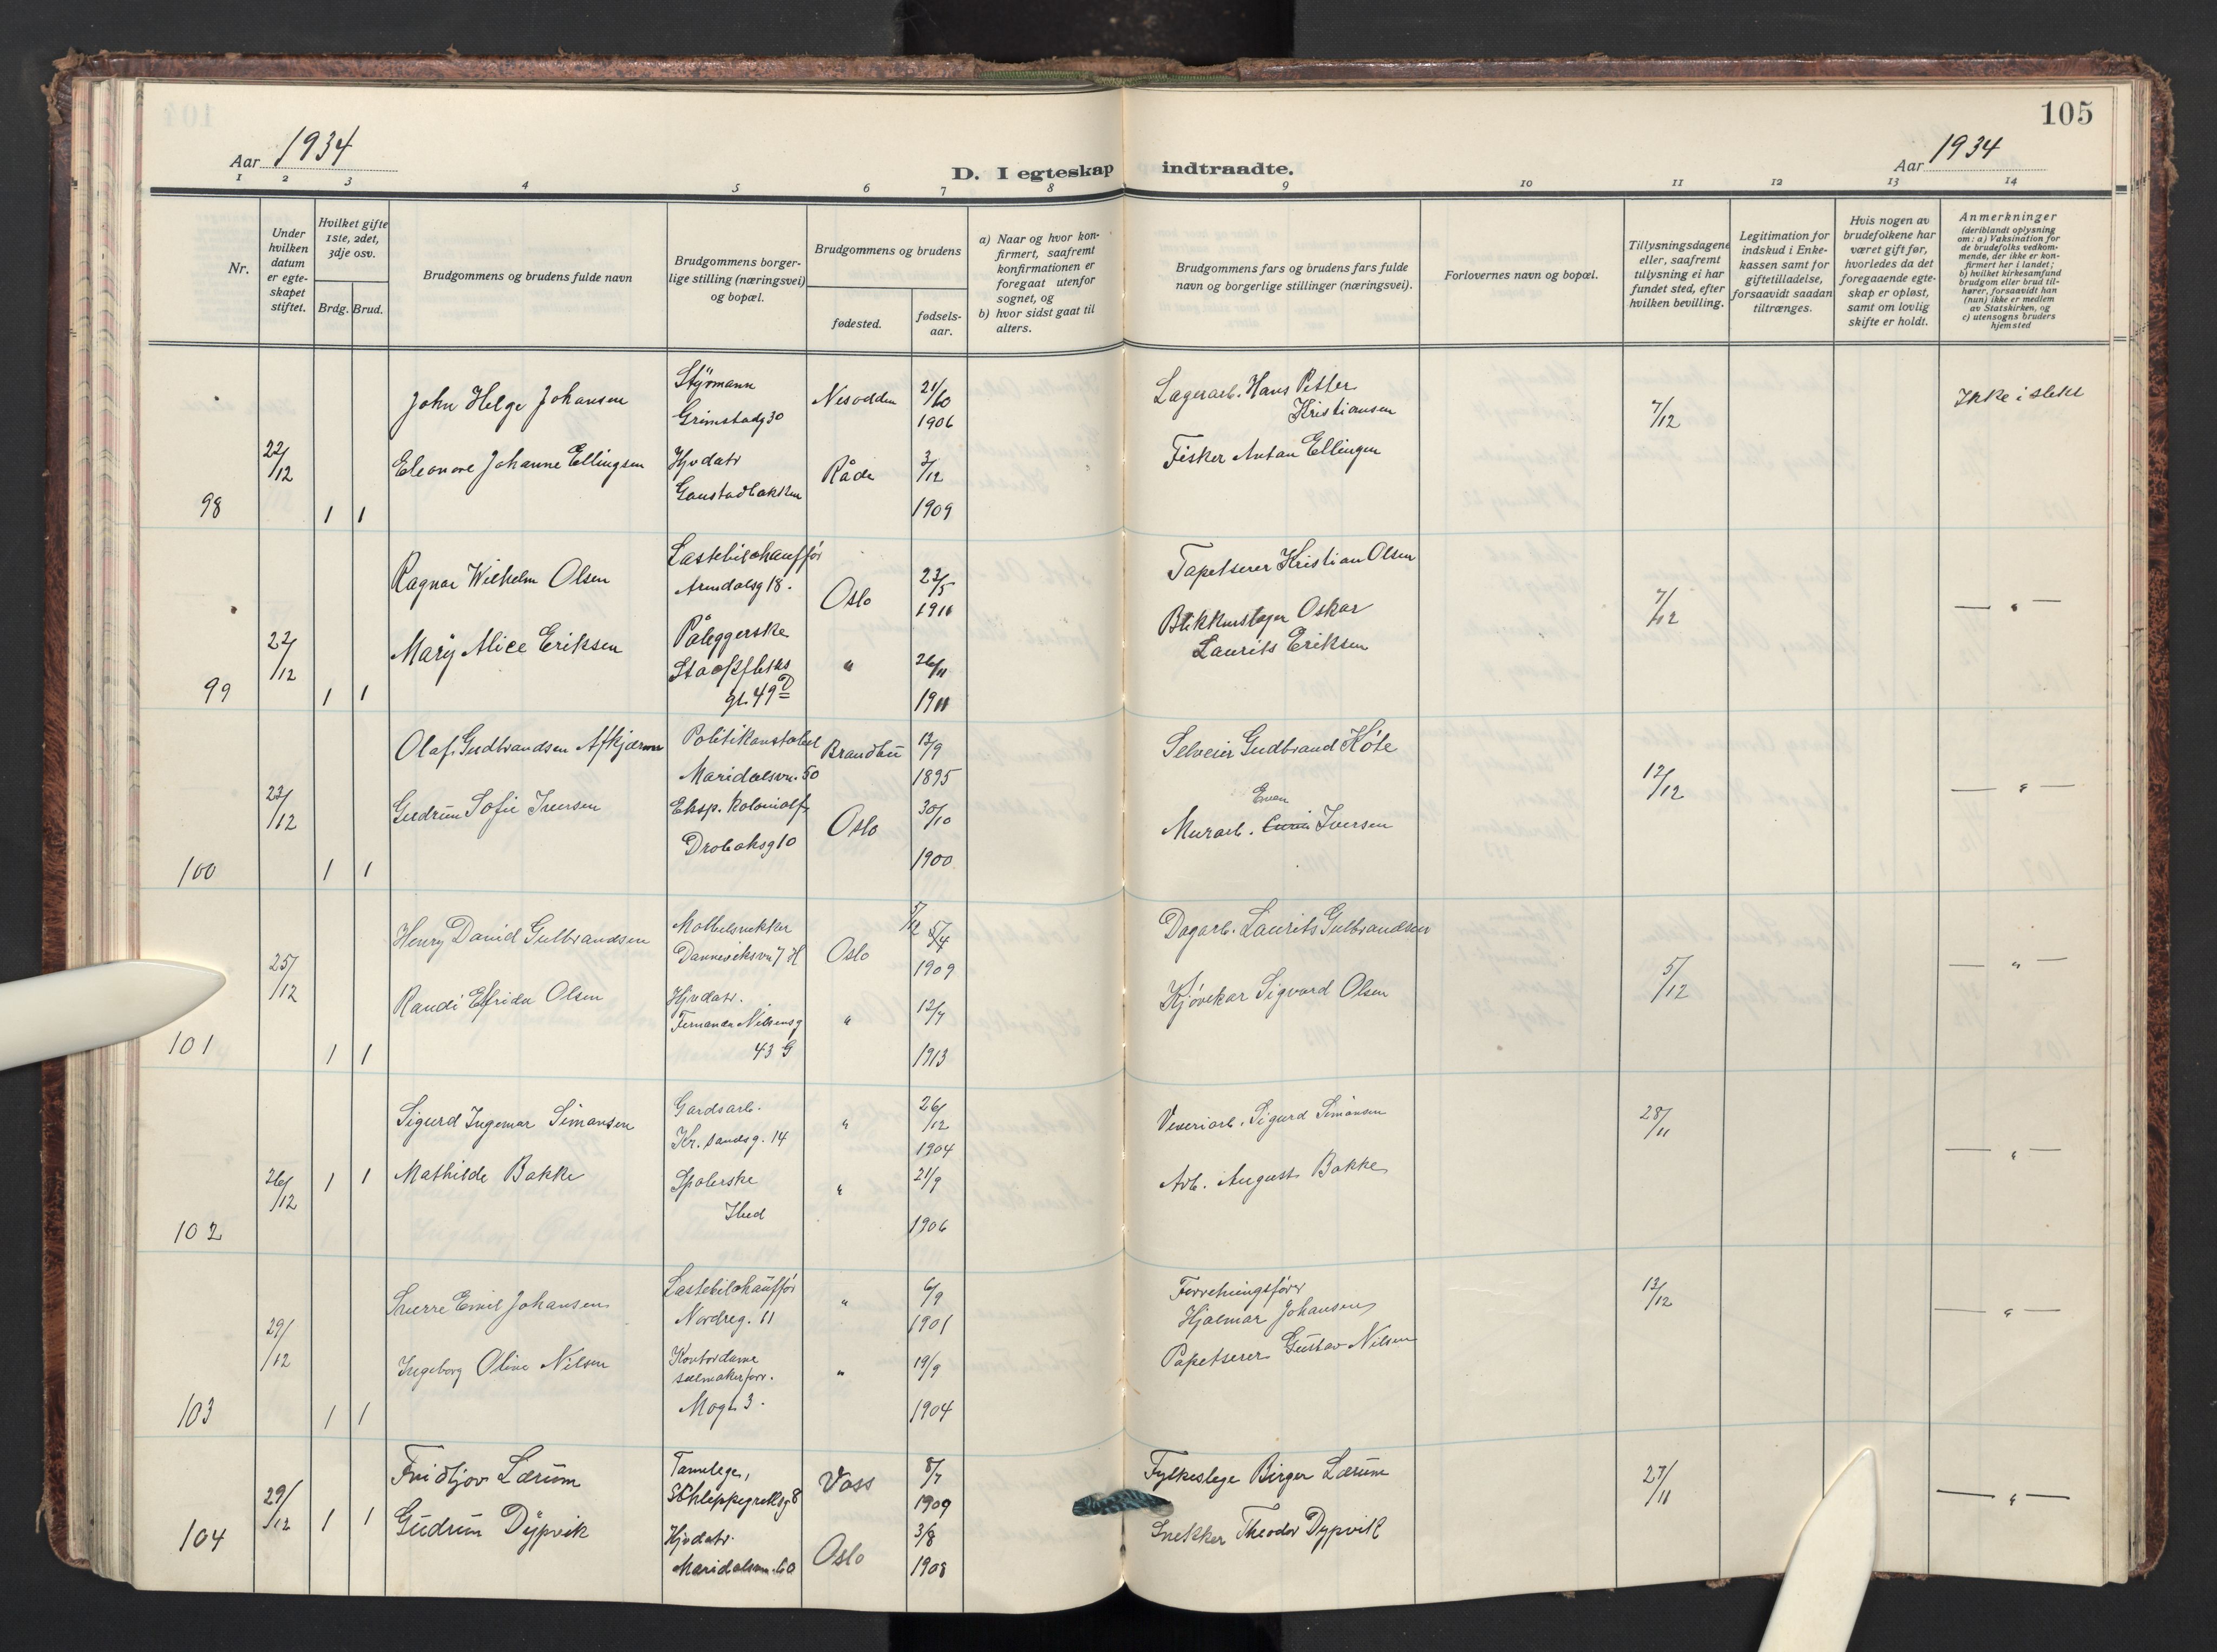 105
Aar 1934
D. I egteskap indtraadte.
Aar 1934
1 2 3 4 5 6 7 8 9 10 11 12 13 14
Nr.
Under hvilken datum er egte-skapet stiftet.
Hvilket gifte 1ste, 2det, 3dje osv.
Brdg. Brud.
Brudgommens og brudens fulde navn
Brudgommens borger-lige stilling (næringsvei) og bopæl.
Brudgommens og brudens
fødested.
fødsels-aar.
a) Naar og hvor kon-firmert, saafremt konfirmationen er foregaat utenfor sognet, og
b) hvor sidst gaat til alters.
Brudgommens fars og brudens fars fulde navn og borgerlige stillinger (næringsvei).
Forlovernes navn og bopæl.
Tillysningsdagene eller, saafremt tillysning ei har fundet sted, efter hvilken bevilling.
Legitimation for indskud i Enke-kassen samt for giftetilladelse, forsaavidt saadan tiltrænges.
Hvis nogen av brudefolkene har været gift før, hvorledes da det foregaaende egte-skap er opløst, samt om lovlig skifte er holdt.
Anmerkninger
(deriblandt oplysning om: a) Vaksination for de brudefolks vedkom-mende, der ikke er kon-firmert her i landet; b) hvilket kirkesamfund brudgom eller brud til-hører, forsaavidt han (hun) ikke er medlem av Statskirken, og c) utensogns bruders hjemsted
98
22/12
1 1
John Helge Johansen
Styrmann
Grimstadg 30
Nesodden
21/10
1906
Lagerarb. Hans Petter
Kristiansen
7/12
Ikke i slekt
Eleonore Johanne Ellingsen
Hjvdatr
Gaustadbakken
Råde
3/12
1909
Fisker Anton Ellingsen
99
22/12
1 1
Ragnar Wilhelm Olsen
Lastebilchauffør
Arendalsg 18.
Oslo
23/5
1911
Tapetserer Kristian Olsen
7/12
— " —
Mary Alice Eriksen
Påleggerske
gt. 49 D
"
26/11
1911
Blikkenslager Oskar
Laurits Eriksen
100
22/12
1 1
Olaf Gudbrandsen Afkjærn
Politikonstabel
Maridalsvn. 50
Brandbu
13/9
1895
Selveier Gudbrand
12/12
— " —
Gudrun Sofie Iversen
Eksp. kolonialf.
Drøbaksg 10
Oslo
30/10
1900
Even
Murarb. Iversen
101
25/12
1 1
Henry David Gulbrandsen
Møbelsnekker
Dannevigsvn 7 H
Oslo
5/12 5/4
1909
Dagarb. Laurits Gulbrandsen
5/12
— " —
Randi Elfrida Olsen
Hjvdatr.
Fernanda Nilsensg
43 G
"
12/7
1913
Kjørekar Sigvard Olsen
102
26/12
1 1
Sigurd Ingemar Simonsen
Gardsarb.
Kr.sandsg. 14
"
26/12
1904
Veveriarb. Sigurd Simonsen
28/11
— " —
Mathilde Bakke
Spolerske
Ibid
"
21/9
1906
Arb. August Bakke
103
29/12
1 1
Sverre Emil Johansen
Lastebilchauffør
Nordreg. 11
"
6/9
1901
Forretningsfører
Hjalmar Johansen
13/12
— " —
Ingeborg Oline Nilsen
Kontordame
salmakerforr.
Mogt. 3.
"
19/9
1904
Papetserer Gustav Nilsen
104
29/12
1 1
Fridtjov Lærum
Tannlege,
Schleppegrellsg 8
Voss
8/7
1909
Fylkeslege Birger Lærum
27/11
— " —
Gudrun Dypvik
Hjvdatr.
Maridalsvn. 60
Oslo
3/8
1908
Snekker Theodor Dypvik